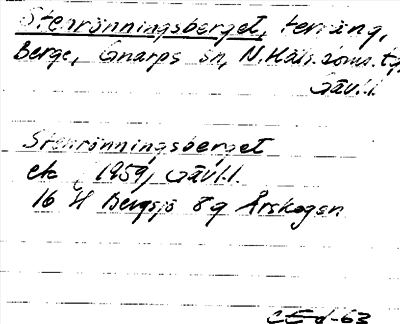 Stenrönningsberget, terräng,
Berge, Gnarps sn, N. Häls. doms. t.g,
Gävl.l.
Stenrönningsberget
ek (1959) Gävl.l.
16 H Bergsjö 8g Årskogen
CEd-63